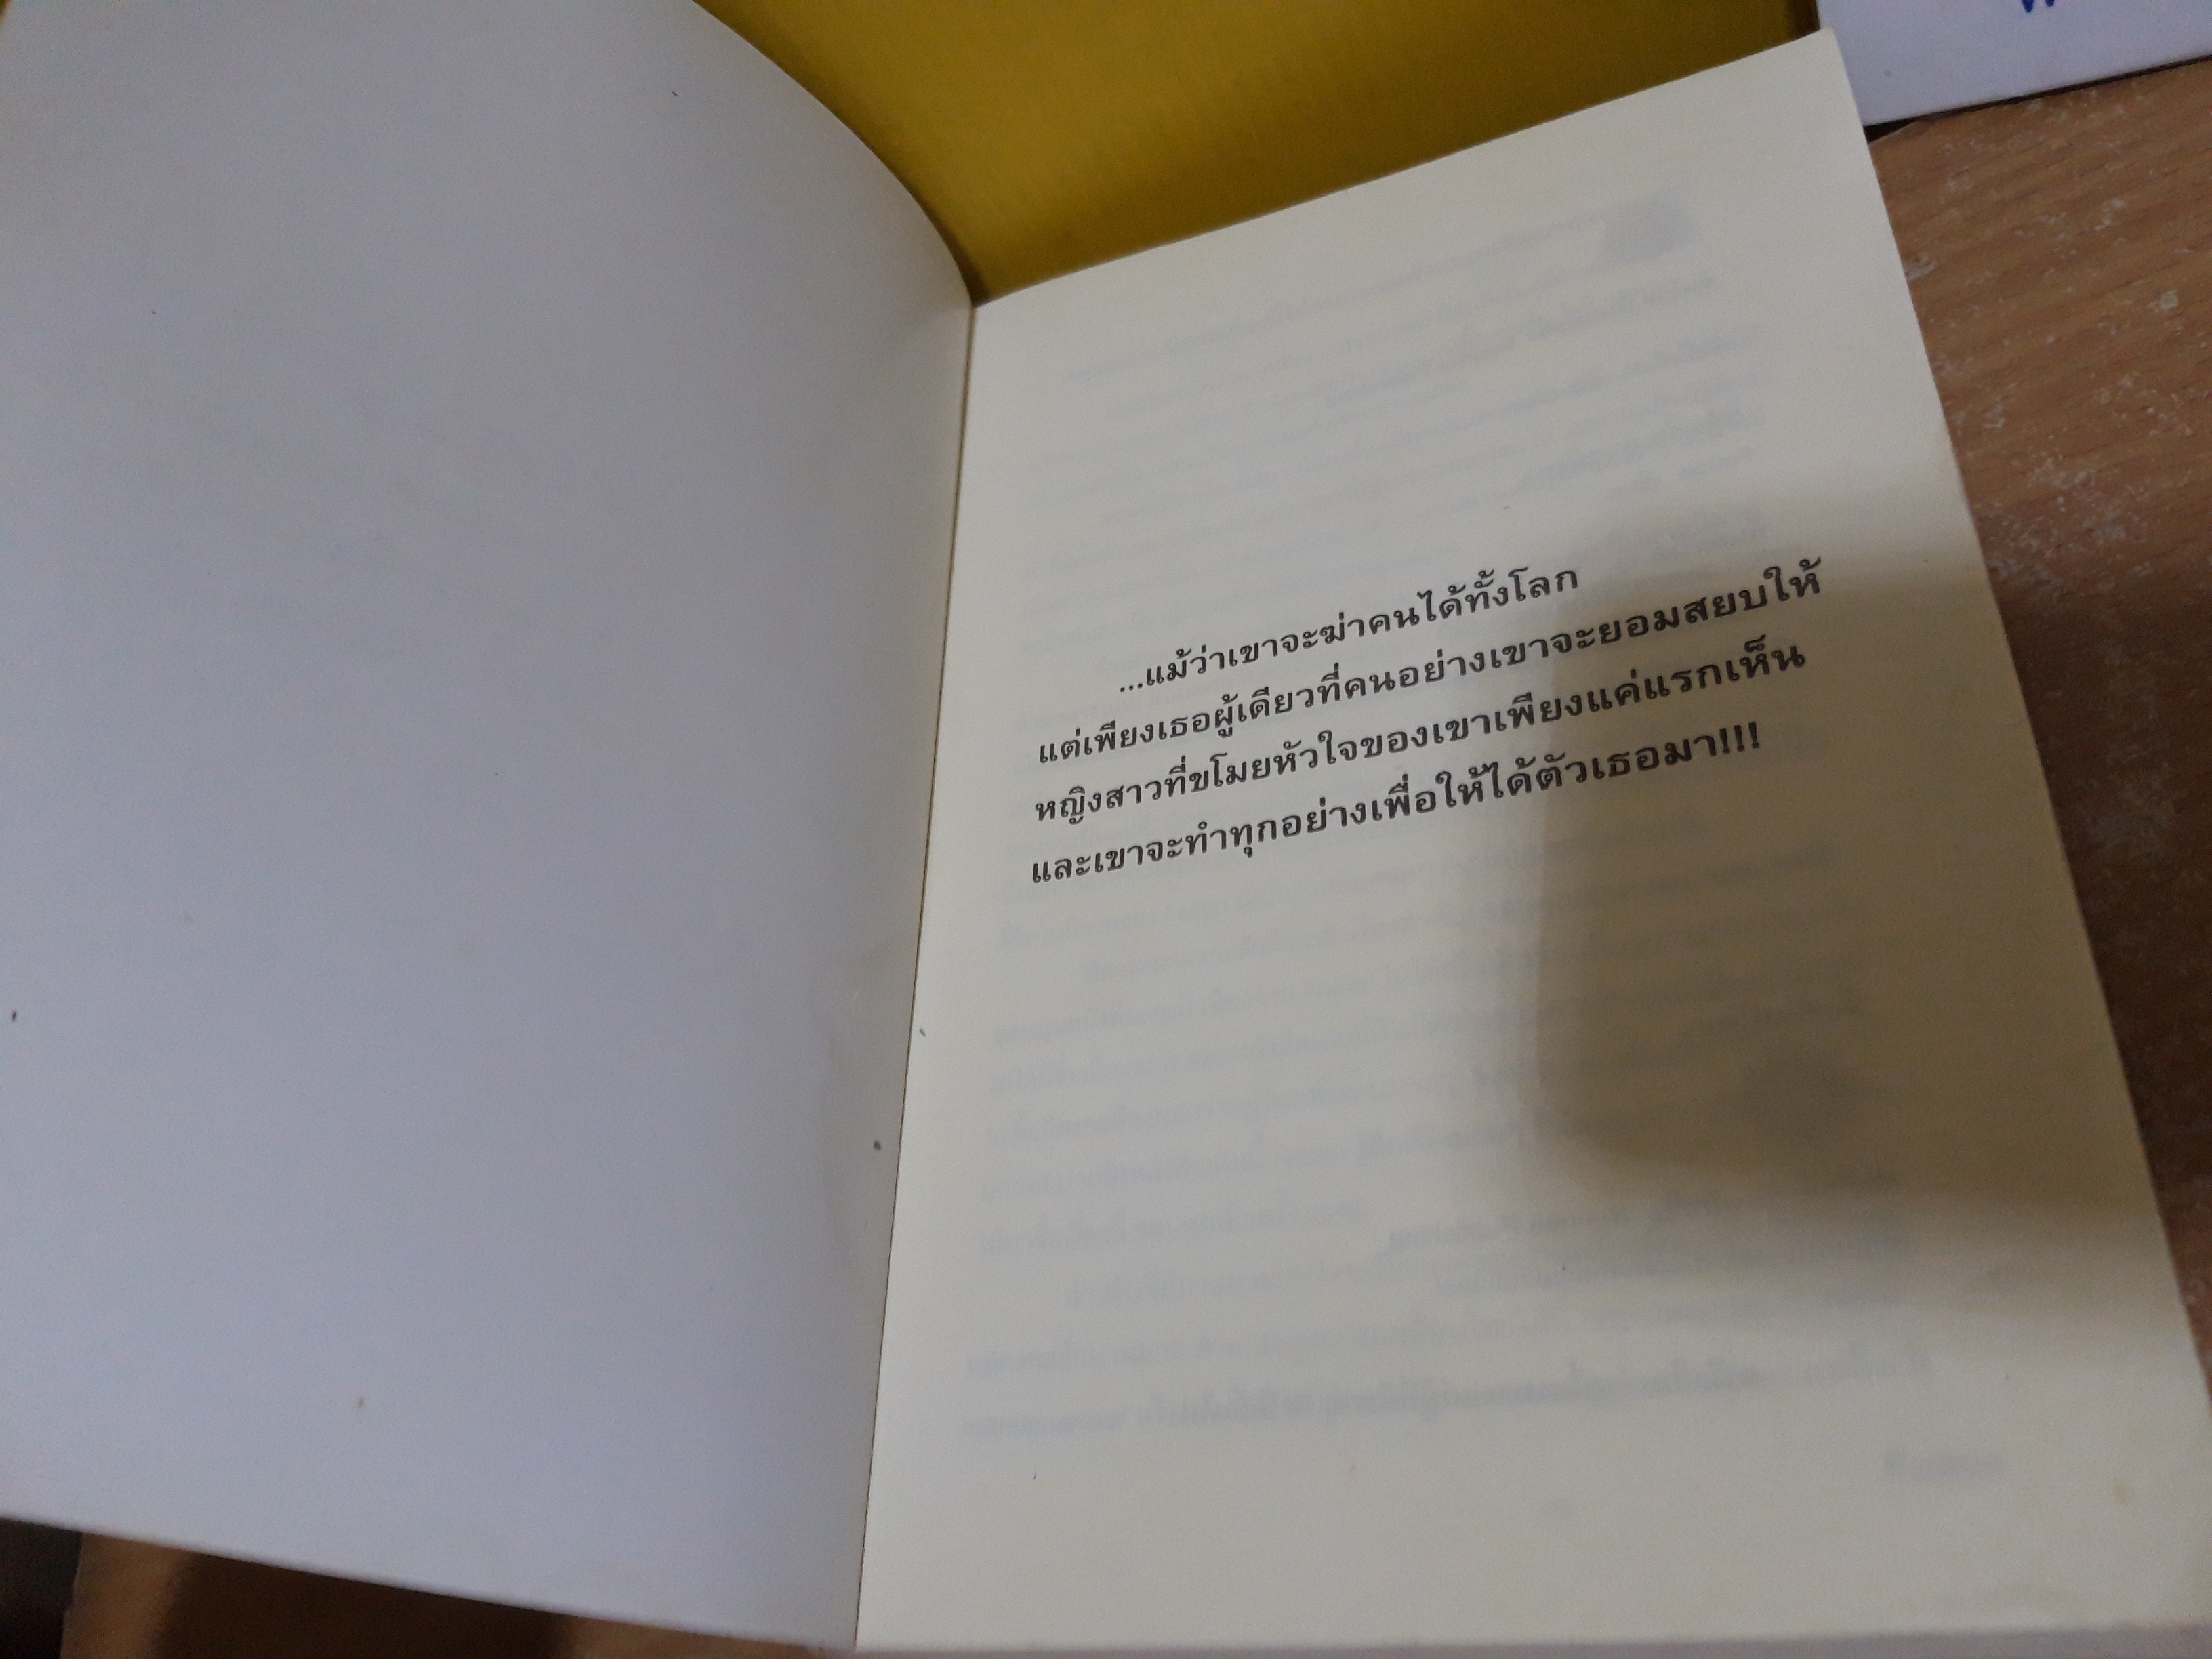 ...แม้ว่าเขาจะฆ่าคนได้ทั้งโลก
แต่เพียงเธอผู้เดียวที่คนอย่างเขาจะยอมสยบให้
หญิงสาวที่ขโมยหัวใจของเขาเพียงแค่แรกเห็น
และเขาจะทำทุกอย่างเพื่อให้ได้ตัวเธอมา!!!